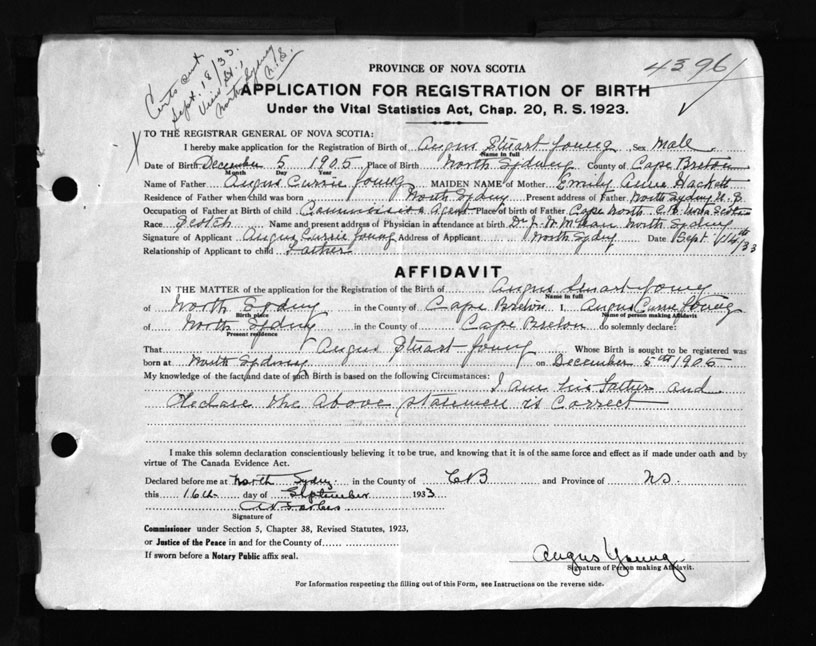 Certs sent
Sept. 18/33.
North Sydney
N.S.
4396
PROVINCE OF NOVA SCOTIA
APPLICATION FOR REGISTRATION OF BIRTH
Under the Vital Statistics Act, Chap. 20, R. S. 1923.
TO THE REGISTRAR GENERAL OF NOVA SCOTIA:
I hereby make application for the Registration of Birth of Angus Stuart Young Sex Male
Name in full
Date of Birth December 5 1905 Place of Birth North Sydney County of Cape Breton
Month Day Year
Name of Father Angus Currie Young MAIDEN NAME of Mother Emily Anne Hackett
Residence of Father when child was born North Sydny Present address of Father North Sydny
Occupation of Father at Birth of child Commission Agent Place of birth of Father Cape North C.B. Nova Scotia
Race Scotch Name and present address of Physician in attendance at birth Dr North Sydny
Signature of Applicant Angus Currie Young Address of Applicant North Sydny Date Sept 14th/33
Relationship of Applicant to child Father
AFFIDAVIT
IN THE MATTER of the application for the Registration of the Birth of Angus Stuart Young
Name in full
of North Sydny in the County of Cape Breton I, Angus Currie Young
Birth place Name of person making Affidavit
of North Sydny in the County of Cape Breton do solemnly declare:
Present residence
That Angus Stuart Young Whose Birth is sought to be registered was
born at North Sydney on December 5th 1905
My knowledge of the fact and date of such Birth is based on the following Circumstances: I am his Father and
Declare the above statement is correct
I make this solemn declaration conscientiously believing it to be true, and knowing that it is of the same force and effect as if made under oath and by
virtue of The Canada Evidence Act.
Declared before me at North Sydny in the County of CB and Province of NS.
this 16th day of September 1933
Signature of
Commissioner under Section 5, Chapter 38, Revised Statutes, 1923,
or Justice of the Peace in and for the County of
If sworn before a Notary Public affix seal.
Angus Young
Signature of Person making Affidavit.
For Information respecting the filling out of this Form, see Instructions on the reverse side.